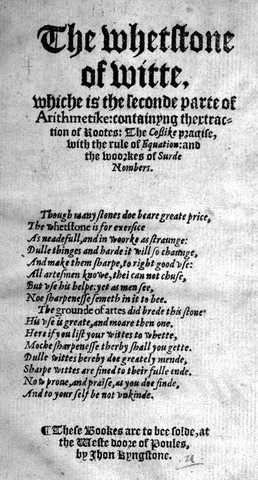 The whetstone
of witte,
whiche is the seconde parte of
Arithmetike: containyng thextrac-
tion of Rootes: The Coßike practise,
with the rule of Equation: and
the woorkes of Surde
Nombers.
Though many stones doe beare greate price,
The whetstone is for exersice
As neadefull, and in woorke as straunge:
Dulle thinges and harde it will so chaunge,
And make them sharpe, to right good vse:
All artesmen knowe, thei can not chuse,
But vse his helpe: yet as men see,
Noe sharpenesse semeth in it to bee.
The grounde of artes did brede this stone:
His vse is greate, and moare then one.
Here if you list your wittes to whette,
Moche sharpenesse therby shall you gette.
Dulle wittes hereby doe greately mende,
Sharpe wittes are fined to their fulle ende.
Now proue, and praise, as you doe finde,
And to your self be not vnkinde.
¶ These Bookes are to bee solde, at
the Weste doore of Poules,
by Jhon Kyngstone.